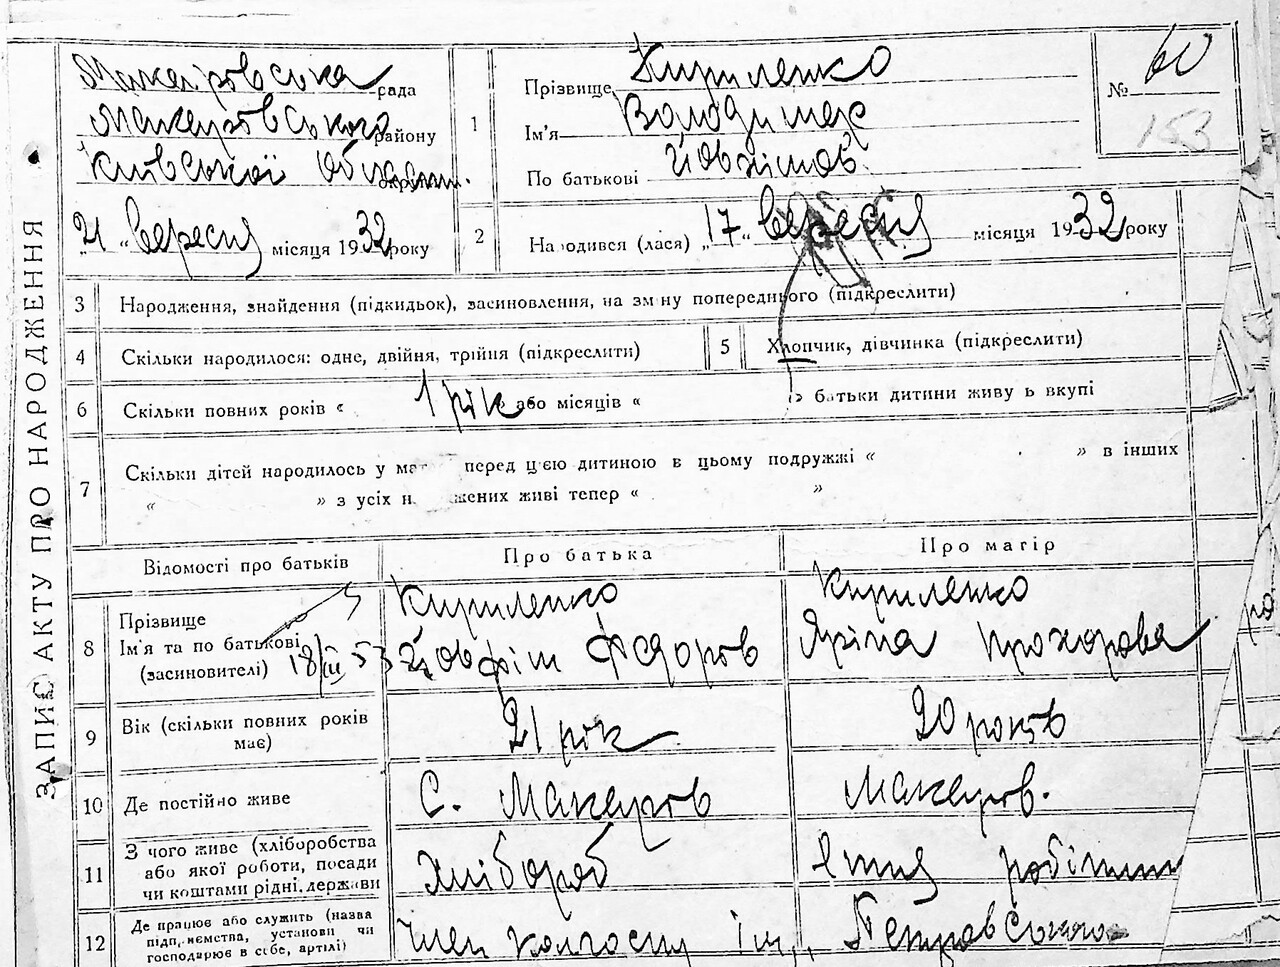 ЗАПИС АКТУ ПРО НАРОДЖЕННЯ
Макарівська рада
Макарівського району
Київської області
„21" вересня місяця 1932 року
1
Прізвище Кириленко
Ім'я Володимер
По батькові Йовхімов.
№ 60
153
2
Народився (лася) „17" вересня місяця 1932 року
3 Народження, знайдення (підкидьок), засиновлення, на зміну попереднього (підкреслити)
4 Скільки народилося: одне, двійня, трійня (підкреслити)
5 Хлопчик, дівчинка (підкреслити)
6 Скільки повних років « 1 рік » або місяців « » батьки дитини живуть вкупі
7 Скільки дітей народилось у перед цією дитиною в цьому подружжі « » в інших
« » з усіх живі тепер « »
Відомості про батьків Про батька Про матір
8 Прізвище
Ім'я та по батькові
(засиновителі) 18/III 53
Кириленко
Йовфім Федоров
Кириленко
Яріна Прохорова
9 Вік (скільки повних років має) 21 рік 20 років
10 Де постійно живе С. Макарів Макарів.
11 З чого живе (хліборобства
або якої роботи, посади
чи коштами рідні, держави
Хлібороб
12 Де працює або служить (назва
підприємства, установи чи
господарює в себе, артілі)
Член колгоспу ім. Петровського